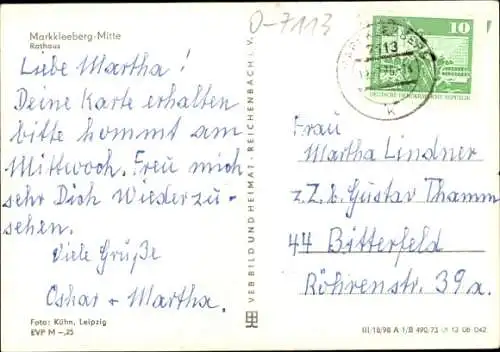 O-7113
Markkleeberg-Mitte
Rathaus
Liebe Martha!
Deine Karte erhalten
bitte kommt am
Mittwoch. Freu mich
sehr Dich Wiederzu-
sehen.
Viele Grüße
Oskar + Martha.
Foto: Kühn, Leipzig
EVP M –,25
VEB BILD UND HEIMAT · REICHENBACH i. V.
7113
k
10
DEUTSCHE DEMOKRATISCHE REPUBLIK
Frau
Martha Lindner
z.Z. b. Gustav Thamm
44 Bitterfeld
Röhrenstr. 39a.
III/18/98 A 1/B 490/73 01 13 08 042